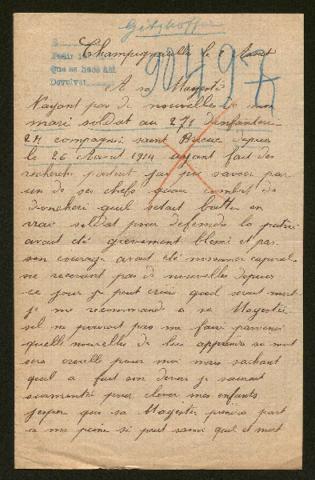 Gitzhoffer
Champigneulle le Aout
Pedir
Que se hace así
Devolver
90497
A sa Majesté
N'ayant pas de nouvelle de mon
mari soldat au 271 d'enfanteri
24 compagni saint Brieuc depuis
le 26 Aout 1914 ayant fait des
recherche partout jai pu savoir par
un de ses chefs quau combat de
donchéri quil setait battu en
vrai soldat pour defendre la patrie
avait eté grievement blessé et par
son courage avait eté nommer caporal
ne recevant pas de nouvelles depuis
ce jour je peut croir quil soit mort
je me recommand a sa Magestée
sil ne pourrait pas me faire parvenir
quelle nouvelles de lui apprendre sa mort
sera cruelle pour moi mais sachant
quil a fait son devoir je saurait
surmonté pour elever mes enfants
jespere que sa Magestée prendra part
a ma peine si peut savoir quil est mort